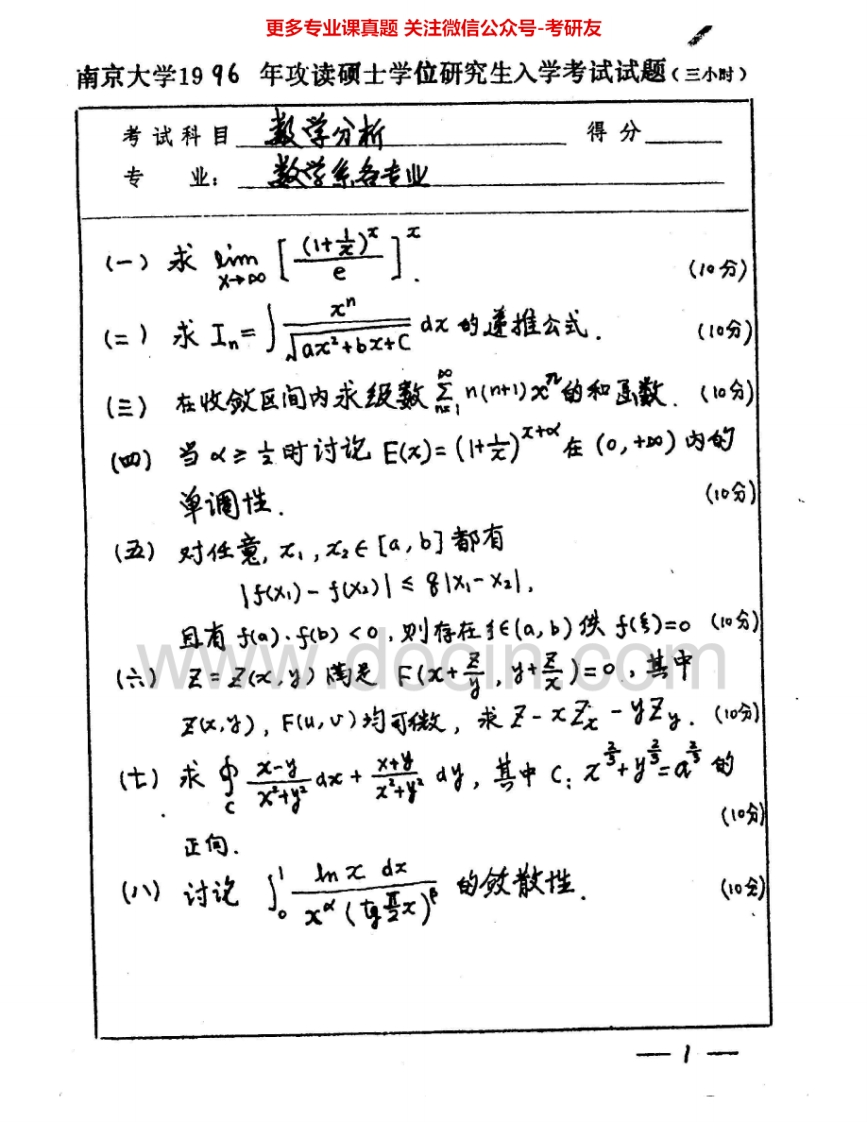 更多专业课真题 关注微信公众号-考研友
南京大学1996 年攻读硕士学位研究生入学考试试题(三小时)
考试科目 数学分析 得分
专 业: 数学系各专业
(一) 求 lim x→∞ [ (1+1/x)^x / e ]^x . (10分)
(二) 求 I_n = ∫ x^n / √(ax²+bx+c) dx 的递推公式. (10分)
(三) 在收敛区间内求级数 ∑_{n=1}^{∞} n(n+1)x^n 的和函数. (10分)
(四) 当 α ≥ 1/2 时讨论 E(x) = (1+1/x)^{x+α} 在 (0,+∞) 内的
单调性. (10分)
(五) 对任意, x₁, x₂ ∈ [a,b] 都有
|f(x₁) - f(x₂)| ≤ q|x₁-x₂|,
且有 f(a)·f(b) < 0, 则存在 ξ∈(a,b) 使 f(ξ)=0 (10分)
(六) Z = Z(x,y) 满足 F(x+z/y, y+z/x) = 0, 其中
Z(x,y), F(u,v) 均可微, 求 Z - xZ_x - yZ_y. (10分)
(七) 求 ∮_C (x-y)/(x²+y²) dx + (x+y)/(x²+y²) dy, 其中 C: x^{2/3}+y^{2/3}=a^{2/3} 的
(10分)
正向.
(八) 讨论 ∫_0^1 ln x dx / (x^α (tg π/2 x)^β) 的敛散性. (10分)
www.docin.com
— 1 —